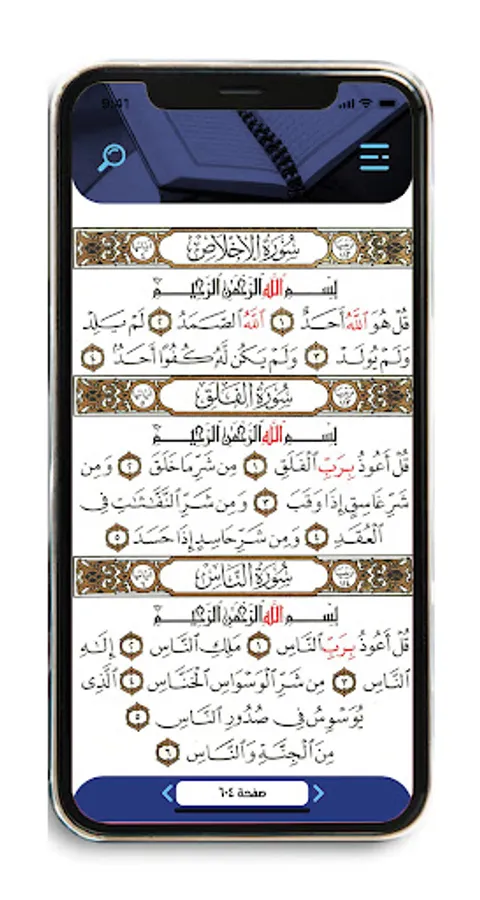 9:41
سُورَةُ الإِخْلَاصِ
بِسْمِ ٱللَّهِ ٱلرَّحْمَٰنِ ٱلرَّحِيمِ
قُلْ هُوَ ٱللَّهُ أَحَدٌ ١ ٱللَّهُ ٱلصَّمَدُ ٢ لَمْ يَلِدْ
وَلَمْ يُولَدْ ٣ وَلَمْ يَكُن لَّهُۥ كُفُوًا أَحَدٌۢ ٤
سُورَةُ الْفَلَقِ
بِسْمِ ٱللَّهِ ٱلرَّحْمَٰنِ ٱلرَّحِيمِ
قُلْ أَعُوذُ بِرَبِّ ٱلْفَلَقِ ١ مِن شَرِّ مَا خَلَقَ ٢ وَمِن
شَرِّ غَاسِقٍ إِذَا وَقَبَ ٣ وَمِن شَرِّ ٱلنَّفَّٰثَٰتِ فِى
ٱلْعُقَدِ ٤ وَمِن شَرِّ حَاسِدٍ إِذَا حَسَدَ ٥
سُورَةُ النَّاسِ
بِسْمِ ٱللَّهِ ٱلرَّحْمَٰنِ ٱلرَّحِيمِ
قُلْ أَعُوذُ بِرَبِّ ٱلنَّاسِ ١ مَلِكِ ٱلنَّاسِ ٢ إِلَٰهِ
ٱلنَّاسِ ٣ مِن شَرِّ ٱلْوَسْوَاسِ ٱلْخَنَّاسِ ٤ ٱلَّذِى
يُوَسْوِسُ فِى صُدُورِ ٱلنَّاسِ ٥
مِنَ ٱلْجِنَّةِ وَٱلنَّاسِ ٦
صفحة ٦٠٤